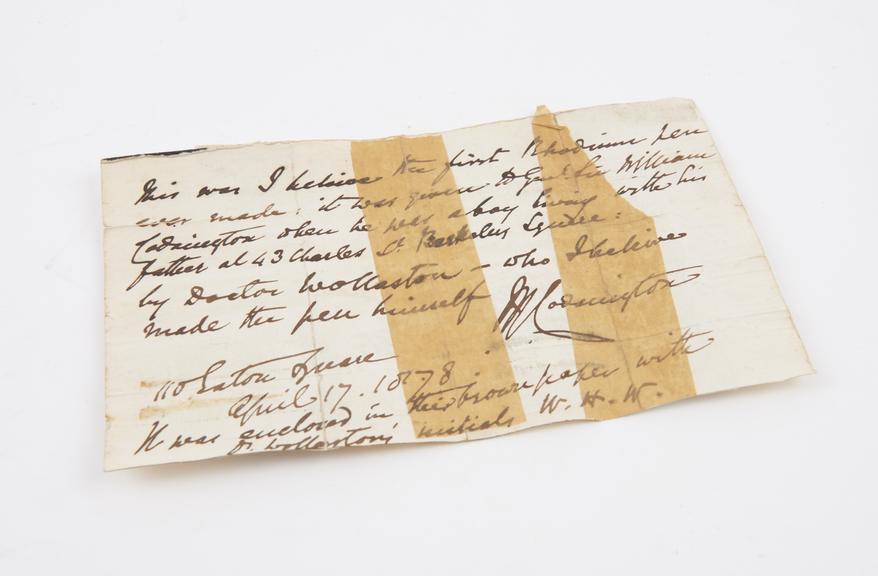 This was I believe the first Rhodium pen
ever made: it was given to Genl. Sir William
Codrington when he was a boy living with his
father at 43 Charles St. Berkeley Square:
by Doctor Wollaston – who I believe
made the pen himself W Codrington
110. Eaton Square
April 17. 1878.
It was enclosed in this brown paper with
Dr. Wollaston's initials W. H. W.